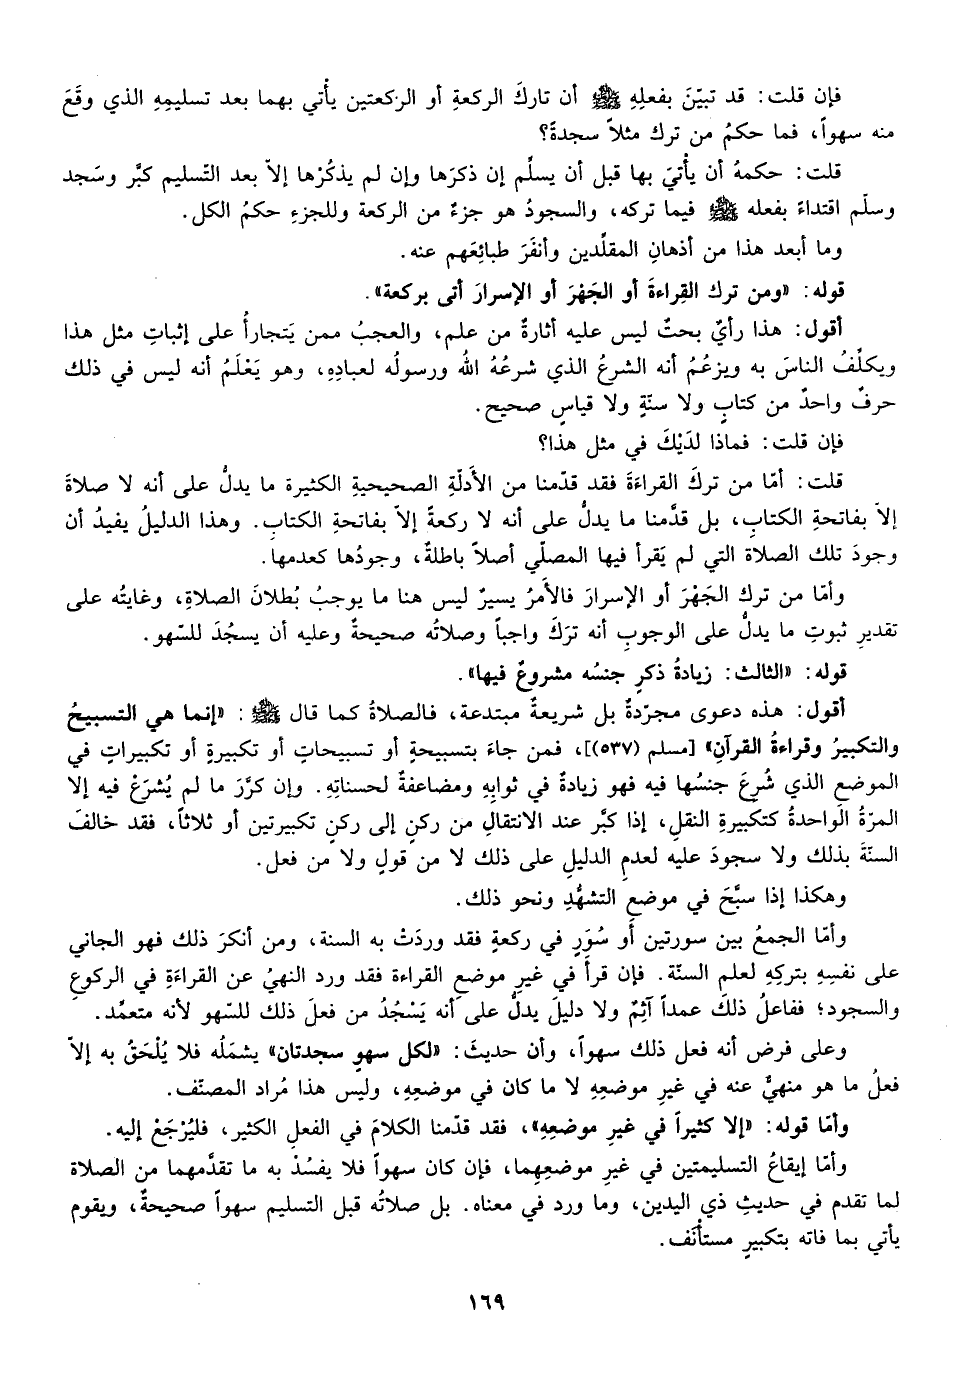 فإن قلت: قد تبيّنَ بفعلِهِ ﷺ أن تاركَ الركعةِ أو الركعتين يأْتي بهما بعد تسليمِهِ الذي وقَعَ
منه سهواً، فما حكمُ من ترك مثلاً سجدةً؟
قلت: حكمهُ أن يأْتيَ بها قبل أن يسلِّم إن ذكرَها وإن لم يذكُرْها إلاّ بعد التّسليم كبَّر وسَجد
وسلّم اقتداءً بفعله ﷺ فيما تركه، والسجودُ هو جزءٌ من الركعة وللجزءِ حكمُ الكل.
وما أبعد هذا من أذهانِ المقلِّدين وأنفَرَ طبائِعَهم عنه.
قوله: «ومن ترك القِراءةَ أو الجَهْرَ أو الإسرارَ أتى بركعة».
أقول: هذا رأيٌ بحتٌ ليس عليه أثارةٌ من علم، والعجبُ ممن يَتجارأُ على إثباتِ مثل هذا
ويكلِّفُ الناسَ به ويزعُمُ أنه الشرعُ الذي شرعَهُ اللهُ ورسولُه لعبادِهِ، وهو يَعْلَمُ أنه ليس في ذلك
حرفٌ واحدٌ من كتابٍ ولا سنّةٍ ولا قياسٍ صحيح.
فإن قلت: فماذا لدَيْكَ في مثل هذا؟
قلت: أمّا من تركَ القراءَةَ فقد قدّمنا من الأَدلّةِ الصحيحيةِ الكثيرة ما يدلُّ على أنه لا صلاةَ
إلاّ بفاتحةِ الكتابِ، بل قدَّمنا ما يدلُّ على أنه لا ركعةً إلاّ بفاتحةِ الكتابِ. وهذا الدليلُ يفيدُ أن
وجودَ تلك الصلاة التي لم يَقرأ فيها المصلّي أصلاً باطلةٌ، وجودُها كعدمها.
وأمّا من ترك الجَهْرَ أو الإسرارَ فالأَمرُ يسيرٌ ليس هنا ما يوجبُ بُطلانَ الصلاةِ، وغايتُه على
تقديرِ ثبوتِ ما يدلُّ على الوجوبِ أنه ترَكَ واجباً وصلاتُه صحيحةٌ وعليه أن يسجُدَ للسّهو.
قوله: «الثالث: زيادةُ ذكرٍ جنسُه مشروعٌ فيها».
أقول: هذه دعوى مجرّدةٌ بل شريعةٌ مبتدعة، فالصلاةُ كما قال ﷺ: «إنما هي التسبيحُ
والتكبيرُ وقراءةُ القرآنِ» [مسلم (٥٣٧)]، فمن جاءَ بتسبيحةٍ أو تسبيحاتٍ أو تكبيرةٍ أو تكبيراتٍ في
الموضعِ الذي شُرعَ جنسُها فيه فهو زيادةٌ في ثوابِهِ ومضاعفةٌ لحسناتِهِ. وإن كرَّرَ ما لم يُشرَعْ فيه إلا
المرّةُ الواحدةُ كتكبيرةِ النقلِ، إذا كبَّر عند الانتقالِ من ركنٍ إلى ركنٍ تكبيرتين أو ثلاثاً، فقد خالفَ
السنّةَ بذلك ولا سجودَ عليه لعدمِ الدليلِ على ذلك لا من قولٍ ولا من فعل.
وهكذا إذا سبَّحَ في موضعِ التشهُّدِ ونحو ذلك.
وأمّا الجمعُ بين سورتين أو سُوَرٍ في ركعةٍ فقد وردَتْ به السنة، ومن أنكرَ ذلك فهو الجاني
على نفسِهِ بتركِهِ لعلم السنّة. فإن قرأَ في غيرِ موضعِ القراءة فقد ورد النهيُ عن القراءَةِ في الركوعِ
والسجود؛ ففاعلُ ذلكَ عمداً آثِمٌ ولا دليلَ يدلُّ على أنه يَسْجُدُ من فعلَ ذلك للسّهو لأنه متعمِّد.
وعلى فرض أنه فعل ذلك سهواً، وأن حديثَ: «لكل سهوٍ سجدتان» يشمَلُه فلا يُلْحَقُ به إلاّ
فعلُ ما هو منهيٌّ عنه في غيرِ موضعِهِ لا ما كان في موضعِهِ، وليس هذا مُراد المصنّف.
وأمّا قوله: «إلا كثيراً في غيرِ موضعِهِ»، فقد قدّمنا الكلامَ في الفعلِ الكثير، فليُرْجَعْ إليه.
وأمّا إيقاعُ التسليمتين في غيرِ موضعِهما، فإن كان سهواً فلا يفسُدْ به ما تقدَّمهما من الصلاة
لما تقدم في حديثِ ذي اليدين، وما ورد في معناه. بل صلاتُه قبل التسليم سهواً صحيحةٌ، ويقوم
يأتي بما فاته بتكبيرٍ مستأْنَف.
١٦٩